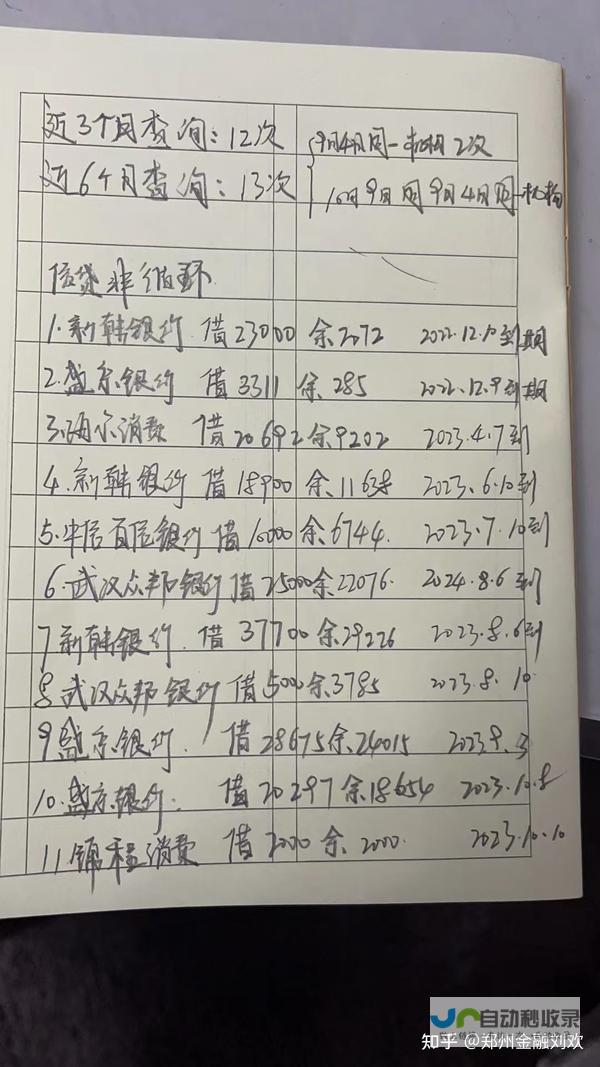 近3个月查询:12次
{9月4月同一机构2次
近6个月查询:13次
10月9月同9月4月同一机构
信贷非循环
1.新韩银行 借23000 余2072 2022.12.10到期
2.盛京银行 借3311 余285 2022.12.9到期
3.海尔消费 借20692余9202 2023.4.7到
4.新韩银行 借18900 余11638 2023.6.10到
5.中信百信银行借10000 余6744. 2023.7.10到
6.武汉众邦银行借25000余22076. 2024.8.6到
7新韩银行. 借37700余29226 2023.8.6到
8武汉众邦银行借5000余3785 2023.8.10.
9盛京银行. 借28675余24015 2023.9.3
10.盛京银行. 借20297余18654 2023.10.8
11锦程消费 借2000余2000. 2023.10.10
自动秒收录
知乎 @郑州金融刘欢